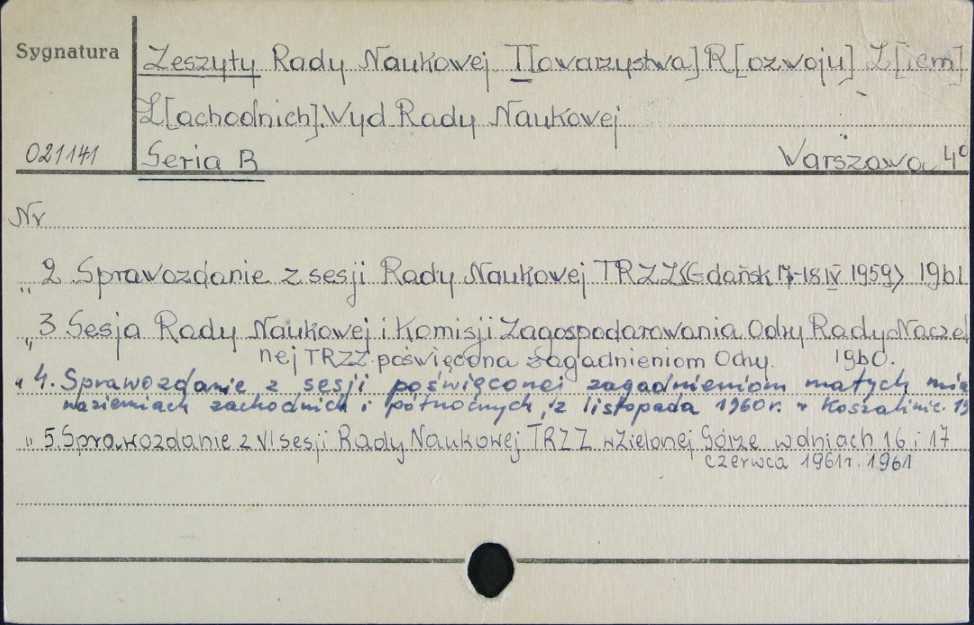 Sygnatura
Zeszyty Rady Naukowej T[owarzystwa] R[ozwoju] Z[iem]
Z[achodnich]. Wyd. Rady Naukowej
021141 Seria B Warszawa 4°
Nr
" 2 Sprawozdanie z sesji Rady Naukowej TRZZ (Gdańsk 17-18 IV 1959) 1961
" 3 Sesja Rady Naukowej i Komisji Zagospodarowania Odry Rady Naczel
nej TRZZ poświęcona zagadnieniom Odry. 1960.
" 4. Sprawozdanie z sesji poświęconej zagadnieniom małych mia
na ziemiach zachodnich i północnych, z listopada 1960 r. w Koszalinie. 19
" 5. Sprawozdanie z VI sesji Rady Naukowej TRZZ w Zielonej Górze w dniach 16 i 17
czerwca 1961 r. 1961